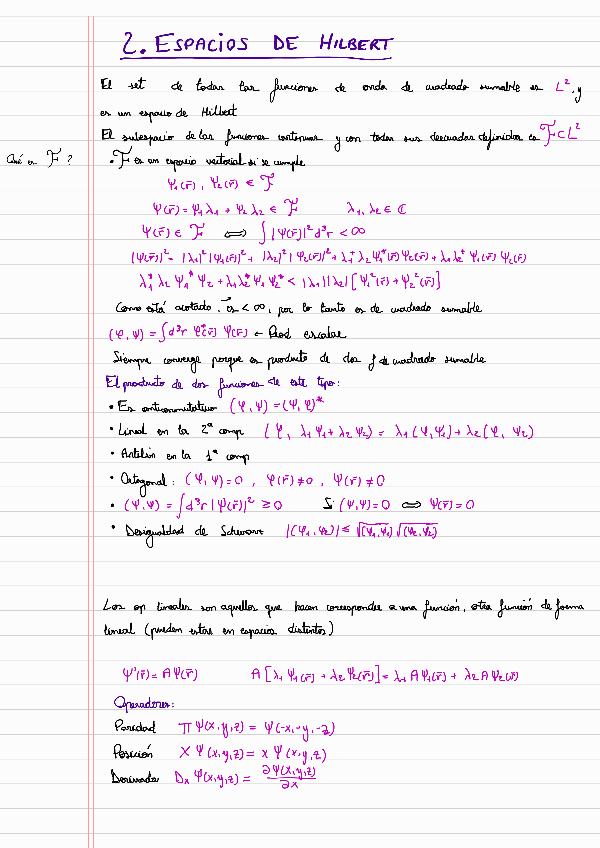 2. ESPACIOS DE HILBERT
El set de todas las funciones de onda de cuadrado sumable es L², y
es un espacio de Hilbert
El subespacio de las funciones continuas y con todas sus derivadas definidas es ℱ⊂L²
Qué es ℱ ?
• ℱ es un espacio vectorial si se cumple
Ψ₁(r̄), Ψ₂(r̄) ∈ ℱ
Ψ(r̄) = Ψ₁λ₁ + Ψ₂λ₂ ∈ ℱ λ₁, λ₂ ∈ ℂ
Ψ(r̄) ∈ ℱ ⟺ ∫|Ψ(r̄)|² d³r < ∞
|Ψ(r̄)|² = |λ₁|²|Ψ₁(r̄)|² + |λ₂|²|Ψ₂(r̄)|² + λ₁*λ₂Ψ₁*(r̄)Ψ₂(r̄) + λ₁λ₂* Ψ₁(r̄)Ψ₂(r̄)
λ₁*λ₂Ψ₁*Ψ₂ + λ₁λ₂*Ψ₁Ψ₂* < |λ₁||λ₂|[Ψ₁²(r̄) + Ψ₂²(r̄)]
Como está acotado, es < ∞, por lo tanto es de cuadrado sumable
(φ, Ψ) = ∫d³r φ*(r̄) Ψ(r̄) ← Prod escalar
Siempre converge porque es producto de dos f de cuadrado sumable
El producto de dos funciones de este tipo:
• Es anticonmutativo (φ, Ψ) = (Ψ, φ)*
• Lineal en la 2ª comp (φ, λ₁Ψ₁ + λ₂Ψ₂) = λ₁(φ, Ψ₁) + λ₂(φ, Ψ₂)
• Antilin en la 1ª comp
• Ortogonal: (φ, Ψ) = 0, φ(r̄) ≠ 0, Ψ(r̄) ≠ 0
• (Ψ, Ψ) = ∫d³r |Ψ(r̄)|² ≥ 0 Si (Ψ, Ψ) = 0 ⟺ Ψ(r̄) = 0
• Desigualdad de Schwarz |(Ψ₁, Ψ₂)| ≤ √(Ψ₁, Ψ₁) √(Ψ₂, Ψ₂)
Los op lineales son aquellos que hacen corresponder a una función, otra función de forma
lineal (pueden estar en espacios distintos)
Ψ'(r̄) = AΨ(r̄) A[λ₁Ψ₁(r̄) + λ₂Ψ₂(r̄)] = λ₁AΨ₁(r̄) + λ₂AΨ₂(r̄)
Operadores:
Paridad ΠΨ(x,y,z) = Ψ(-x,-y,-z)
Posición XΨ(x,y,z) = xΨ(x,y,z)
Derivada DₓΨ(x,y,z) = ∂Ψ(x,y,z)/∂x